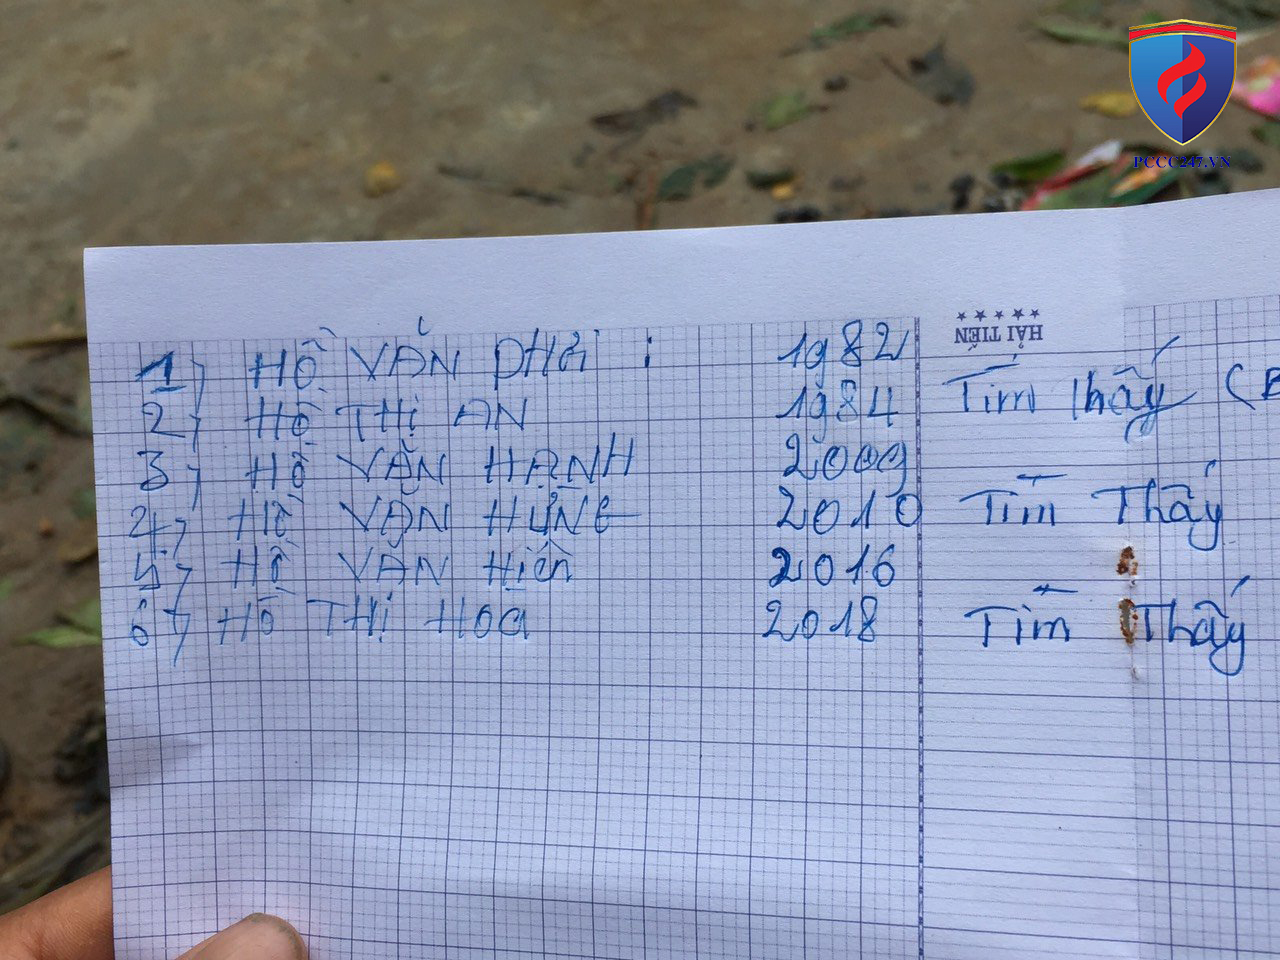 PCCC247.VN
★★★★★
HẢI TIẾN
1) HỒ VĂN PHƠI : 1982
2) HỒ THỊ AN 1984 Tìm thấy (
3) HỒ VĂN HẠNH 2009
4) HỒ VĂN HƯNG 2010 Tìm Thấy
5) HỒ VĂN Hiền 2016
6) HỒ THỊ HOA 2018 Tìm Thấy